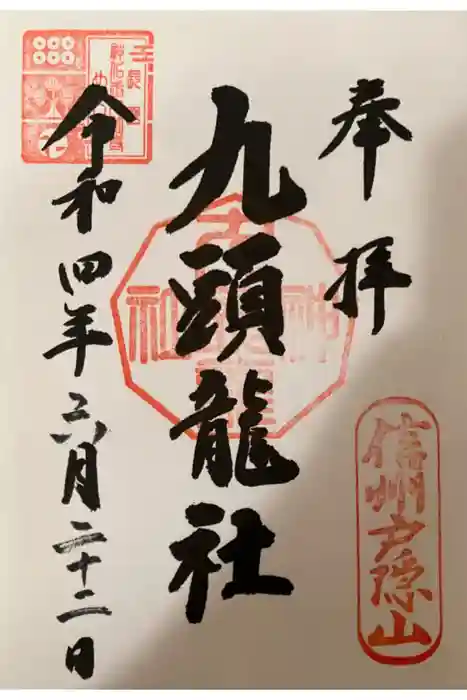 奉拝
信州戸隠山
九頭龍社
令和四年六月二十二日